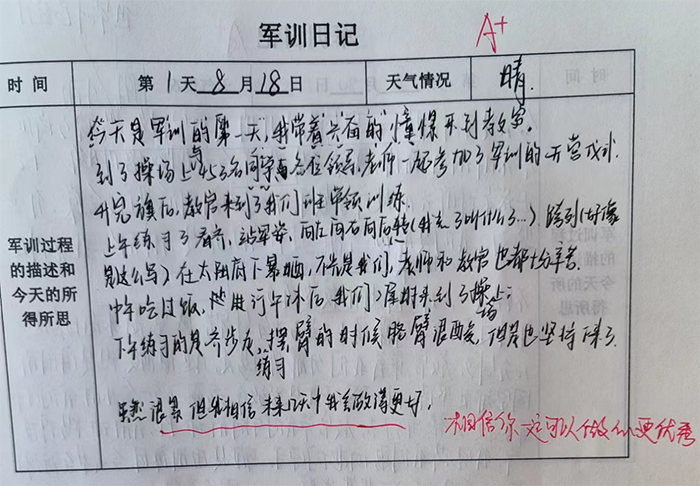 军训日记
A+
时间 第1天8月18日 天气情况 晴
军训过程的描述和今天的所得所思
今天是军训的第一天,我带着的憧憬来到教室。
到了操场上与453名同学与各位领导、老师一起参加了军训的开营仪式
升完旗后,教官来到了我们班带领训练.
上午练习了看齐,站军姿,向左向右向后转(我忘了叫什么了...)跨列(好像
是这么写)在太阳底下暴晒,不光是我们,老师和教官也都十分辛苦
中午吃过饭,进行午休后我们准时来到了操场上
下午练习的是齐步走,练习摆臂的时候胳臂很酸,但是也坚持下来了
虽然很累但我相信未来几天中我会做得更好.
相信你还可以做的更优秀